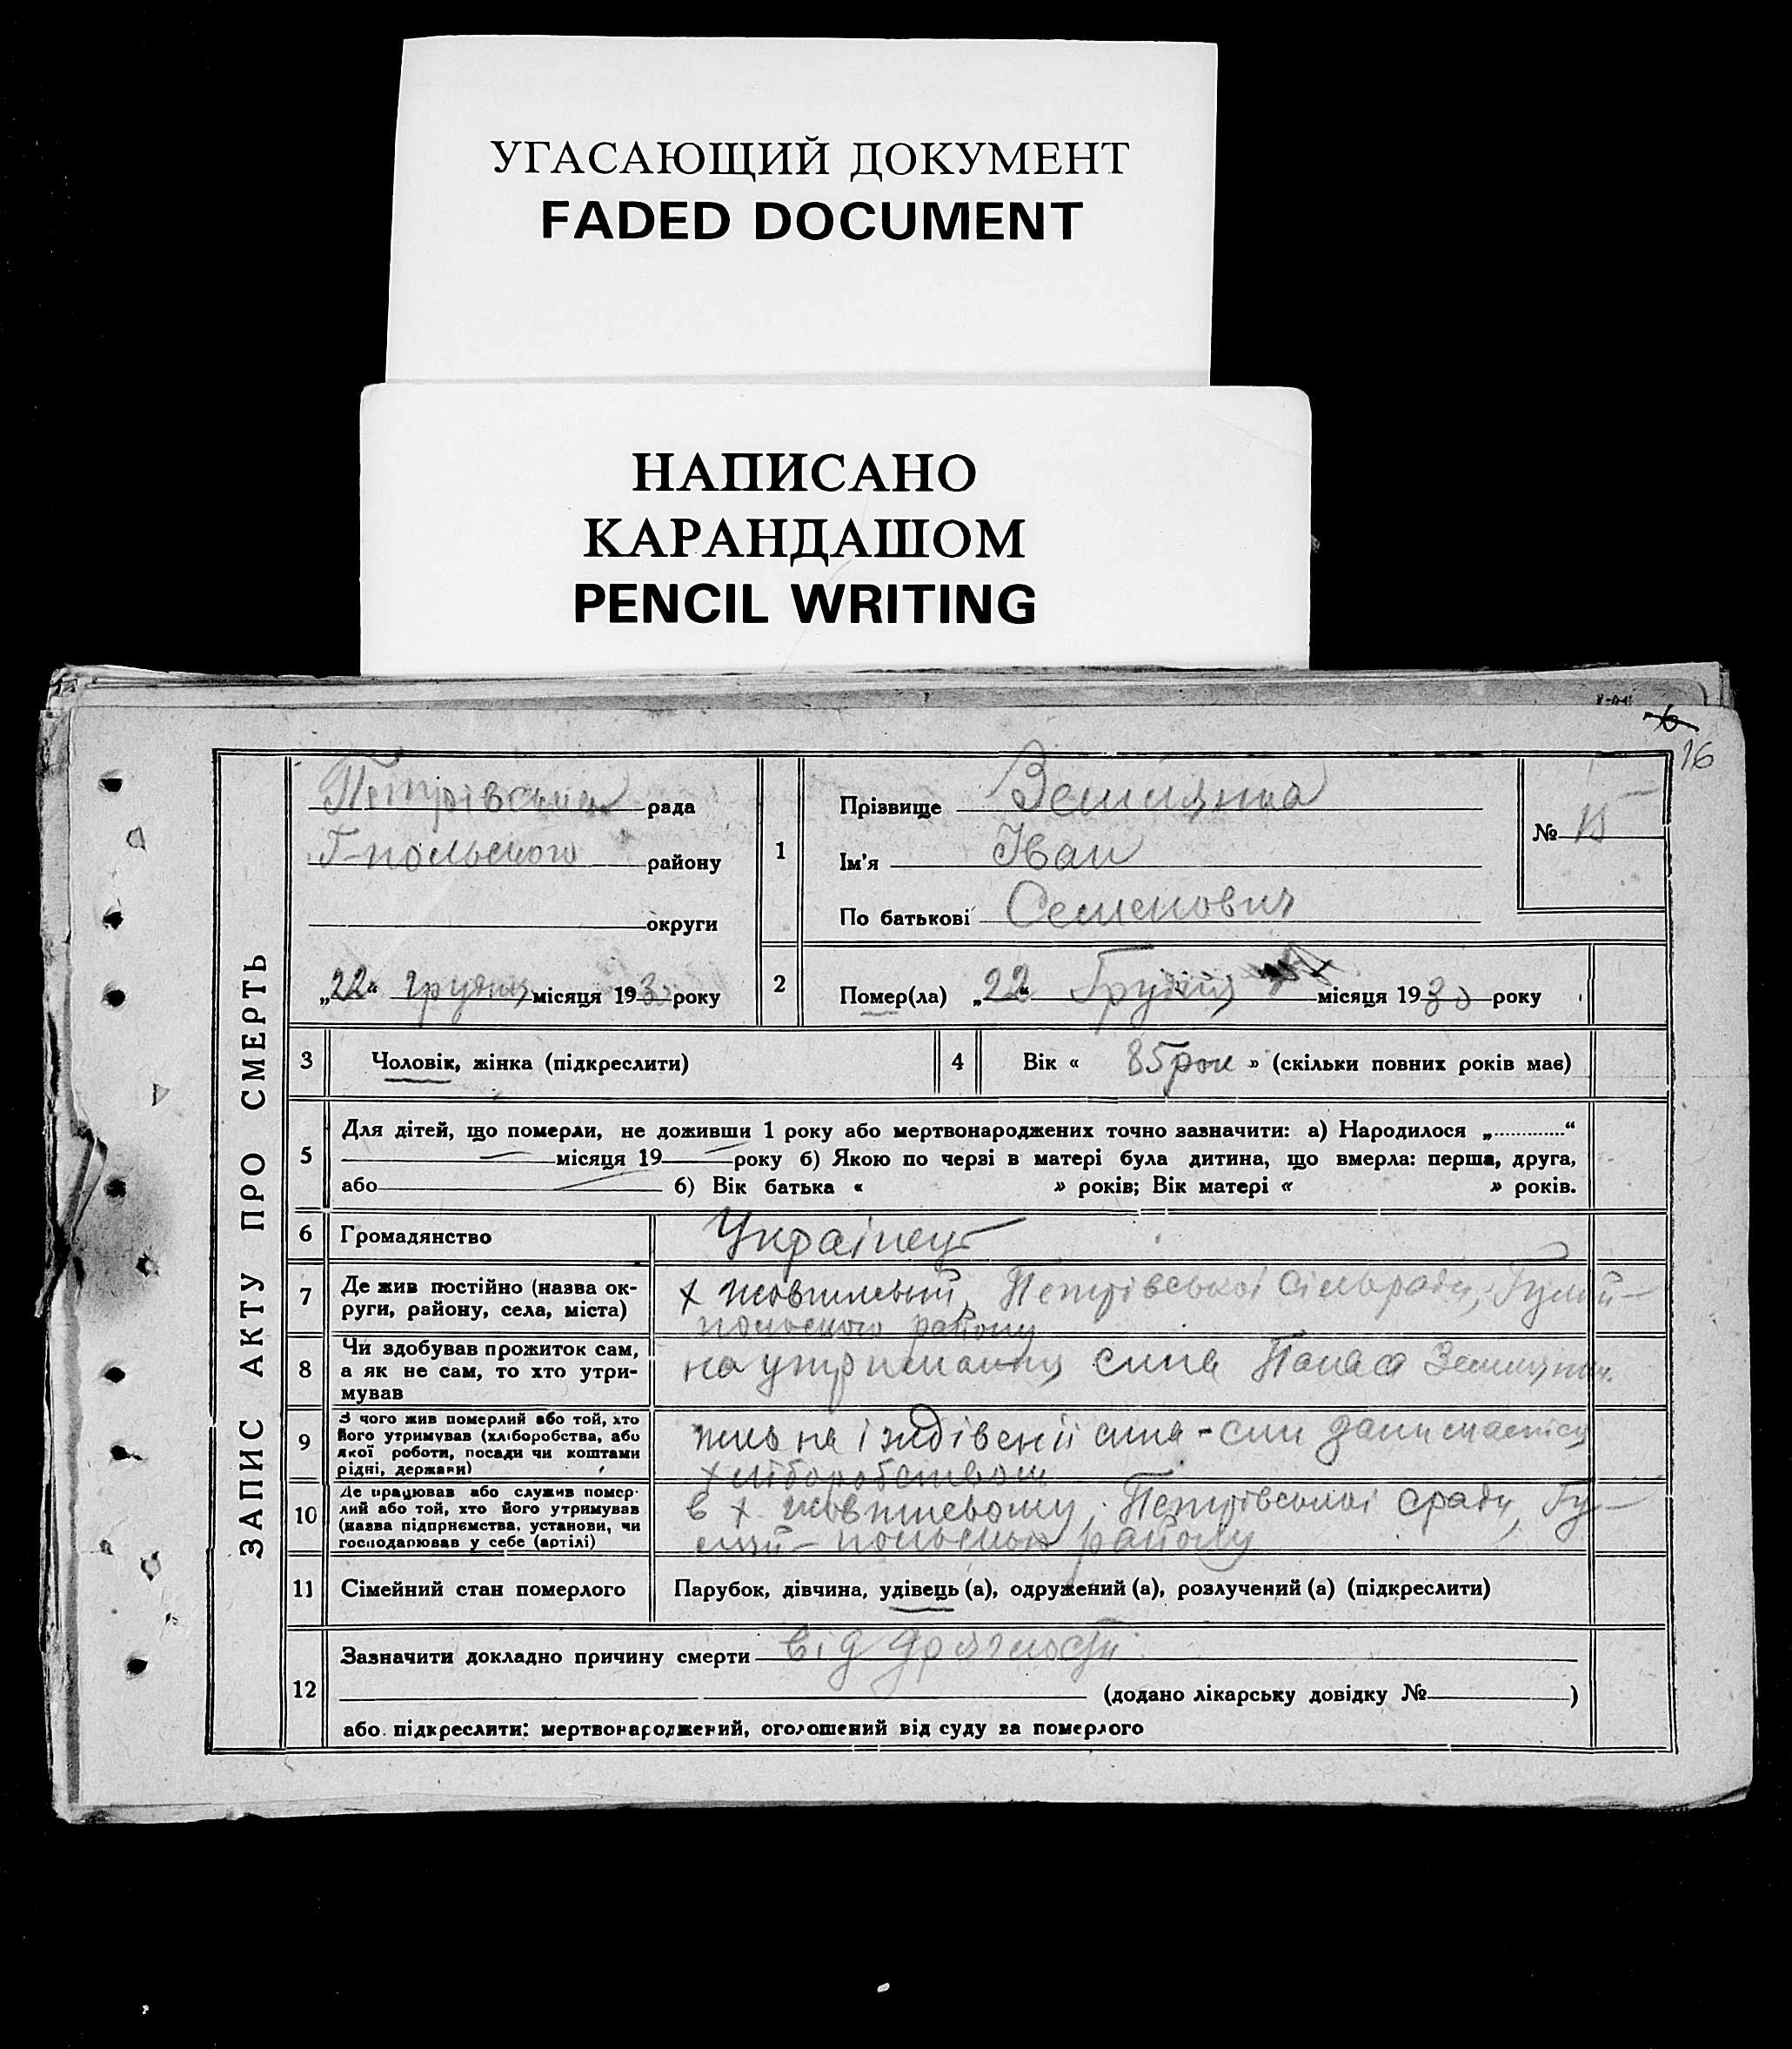 УГАСАЮЩИЙ ДОКУМЕНТ
FADED DOCUMENT
НАПИСАНО
КАРАНДАШОМ
PENCIL WRITING
16
ЗАПИС АКТУ ПРО СМЕРТЬ
Петрівська рада
Г-польского району
округи
„22“ грудня місяця 1930 року
1
Прізвище Землянка
Ім'я Іван
По батькові Семенович
№
2
Помер(ла) „22“ Грудня місяця 1930 року
3 Чоловік, жінка (підкреслити)
4 Вік « 85 рок » (скільки повних років має)
5 Для дітей, що померли, не доживши 1 року або мертвонароджених точно зазначити: а) Народилося „.............“
місяця 19 року б) Якою по черзі в матері була дитина, що вмерла: перша, друга,
або б) Вік батька « » років; Вік матері « » років.
6 Громадянство Українець
7 Де жив постійно (назва ок-
руги, району, села, міста)
х Жовтневий, Петрівської сільради, Гуляй-
польского району
8 Чи здобував прожиток сам,
а як не сам, то хто утри-
мував
на утриманню сина Панаса
9 З чого жив померлий або той, хто
його утримував (хліборобства, або
якої роботи, посади чи коштами
рідні, держави)
жив на іждівенії сина - син
хліборобством
10 Де працював або служив помер-
лий або той, хто його утримував
(назва підприємства, установи, чи
господарював у себе (артілі)
в х Жовтневому, Петрівської сради, Гу-
ляй-польского району
11 Сімейний стан померлого Парубок, дівчина, удівець (а), одружений (а), розлучений (а) (підкреслити)
12 Зазначити докладно причину смерти від дряглости
(додано лікарську довідку № )
або підкреслити: мертвонароджений, оголошений від суду за померлого